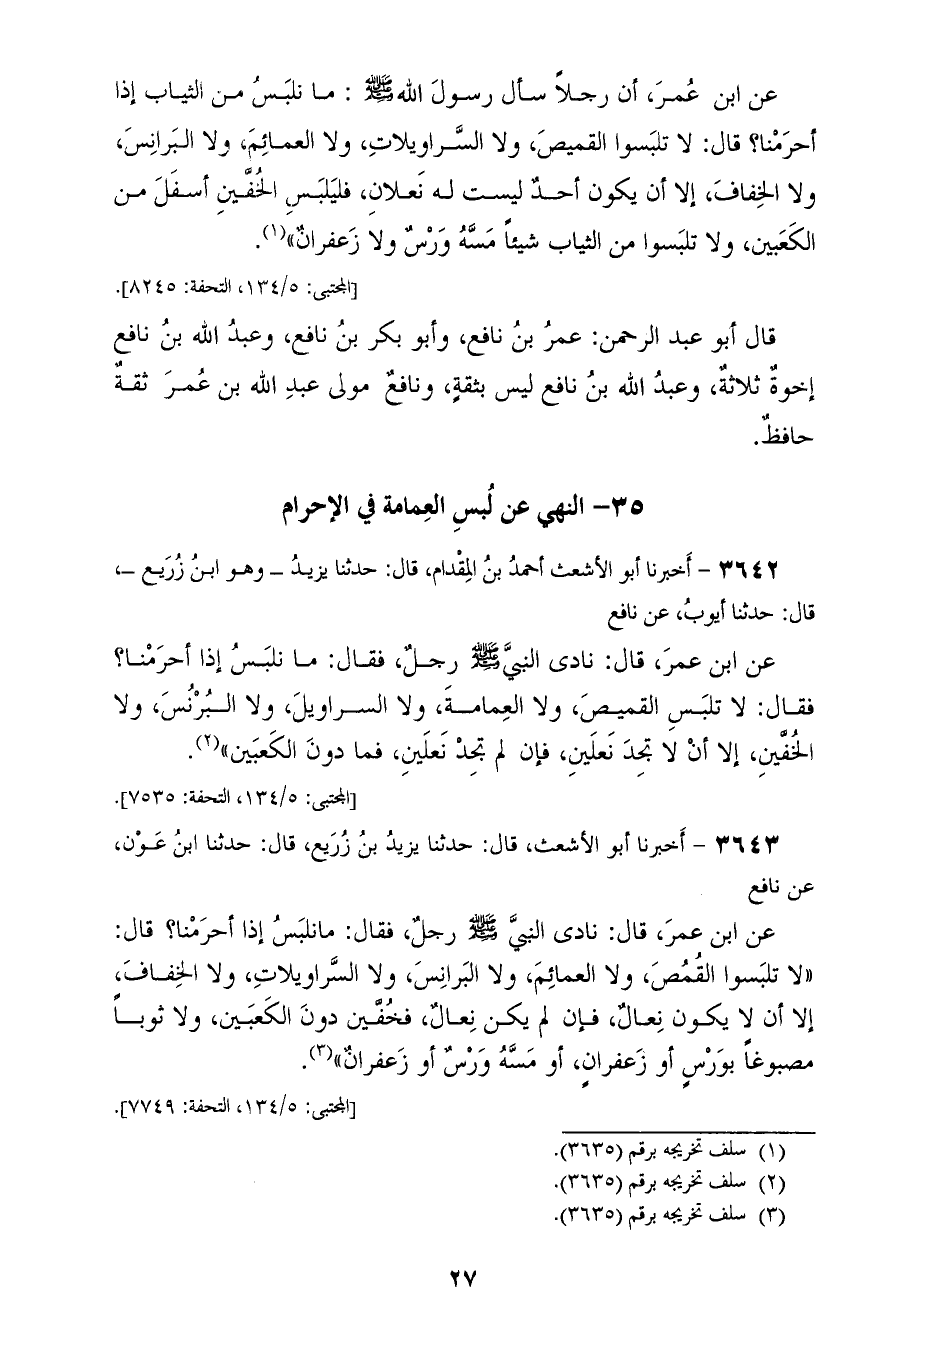 عن ابن عُمرَ، أن رجلاً سأل رسولَ الله ﷺ : ما نلبَسُ من الثياب إذا
أحرَمْنا؟ قال: لا تلبَسوا القميصَ، ولا السَّراويلاتِ، ولا العمائِمَ، ولا البَرانِسَ،
ولا الخِفافَ، إلا أن يكون أحدٌ ليست له نَعلانِ، فليَلبَسِ الخُفَّينِ أسفَلَ من
الكَعَبين، ولا تلبَسوا من الثياب شيئاً مَسَّهُ وَرْسٌ ولا زَعفرانٌ»(١).
[المجتبى: ١٣٤/٥، التحفة: ٨٢٤٥].
قال أبو عبد الرحمن: عمرُ بنُ نافع، وأبو بكر بنُ نافع، وعبدُ الله بنُ نافع
إخوةٌ ثلاثةٌ، وعبدُ الله بنُ نافع ليس بثقةٍ، ونافعٌ مولى عبدِ الله بن عُمرَ ثقةٌ
حافظٌ.
٣٥- النهي عن لُبسِ العِمامة في الإحرام
٣٦٤٢ - أَخبرنا أبو الأشعث أحمدُ بنُ المِقْدام، قال: حدثنا يزيدُ ـ وهو ابنُ زُرَيع ـ،
قال: حدثنا أيوبُ، عن نافع
عن ابن عمرَ، قال: نادى النبيَّ ﷺ رجلٌ، فقال: ما نلبَسُ إذا أحرَمْنا؟
فقال: لا تلبَسِ القميصَ، ولا العِمامةَ، ولا السراويلَ، ولا البُرْنُسَ، ولا
الخُفَّينِ، إلا أنْ لا تجِدَ نَعلَينِ، فإن لم تجِدْ نَعلَينِ، فما دونَ الكَعَبَين»(٢).
[المجتبى: ١٣٤/٥، التحفة: ٧٥٣٥].
٣٦٤٣ - أَخبرنا أبو الأشعث، قال: حدثنا يزيدُ بنُ زُرَيع، قال: حدثنا ابنُ عَوْن،
عن نافع
عن ابن عمرَ، قال: نادى النبيَّ ﷺ رجلٌ، فقال: مانلبَسُ إذا أحرَمْنا؟ قال:
«لا تلبَسوا القُمُصَ، ولا العمائِمَ، ولا البَرانِسَ، ولا السَّراويلاتِ، ولا الخِفافَ،
إلا أن لا يكون نِعالٌ، فإن لم يكن نِعالٌ، فخُفَّين دونَ الكَعَبَين، ولا ثوباً
مصبوغاً بوَرْسٍ أو زَعفرانٍ، أو مَسَّهُ وَرْسٌ أو زَعفرانٌ»(٣).
[المجتبى: ١٣٤/٥، التحفة: ٧٧٤٩].
(١) سلف تخريجه برقم (٣٦٣٥).
(٢) سلف تخريجه برقم (٣٦٣٥).
(٣) سلف تخريجه برقم (٣٦٣٥).
٢٧